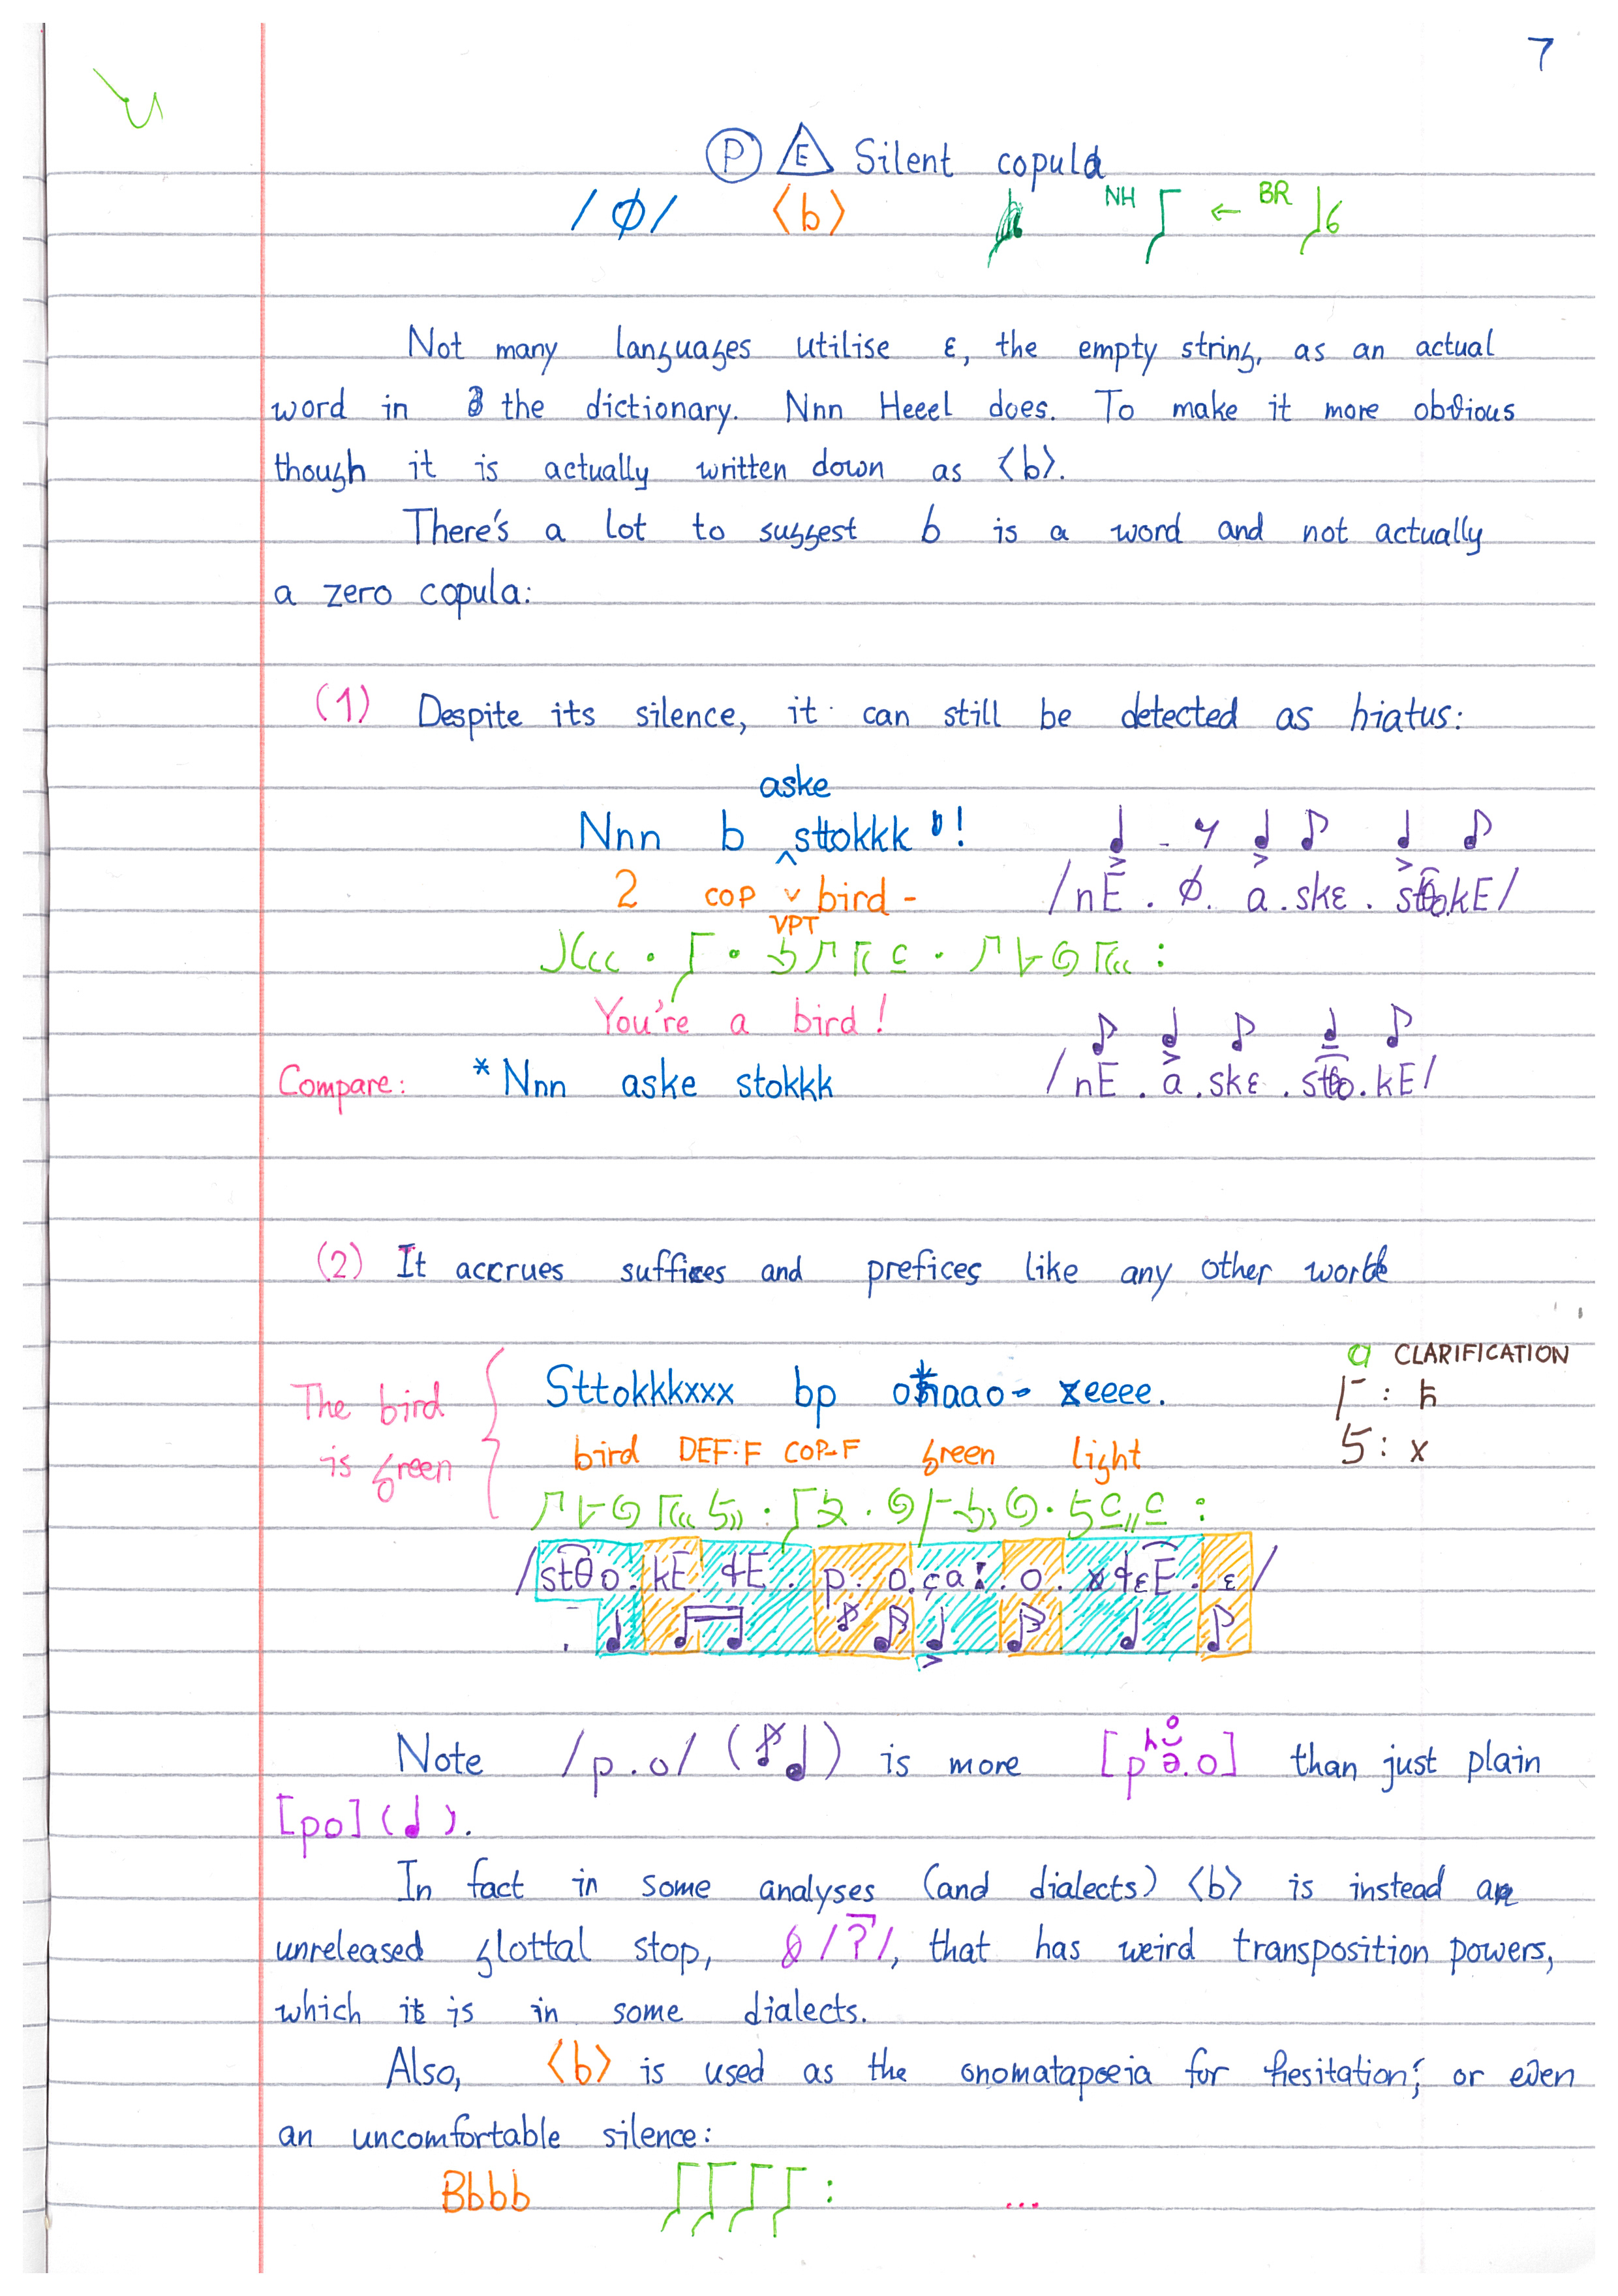 7
Ⓟ E Silent copula
/ϕ/ ⟨b⟩ NH ← BR
Not many languages utilise ε, the empty string, as an actual
word in the dictionary. Nnn Heeel does. To make it more obvious
though it is actually written down as ⟨b⟩.
There's a lot to suggest b is a word and not actually
a zero copula:
(1) Despite its silence, it can still be detected as hiatus:
aske
Nnn b ‸sttokkk !
2 COP ˅ bird - /nE . ϕ. a . skε . stθo.kE/
VPT
You're a bird!
Compare: *Nnn aske stokkk /nE . a . skε . stθo.kE/
(2) It accrues suffices and prefices like any other word
CLARIFICATION
The bird Sttokkkxxx bp oħaao- xeeee. : ħ
is green bird DEF:F COP-F green light : x
Note /p.o/ (♪♩) is more than just plain
[po] (♩).
In fact in some analyses (and dialects) ⟨b⟩ is instead an
unreleased glottal stop, /ʔ̚/, that has weird transposition powers,
which it is in some dialects.
Also, ⟨b⟩ is used as the onomatapoeia for hesitation; or even
an uncomfortable silence:
Bbbb ...